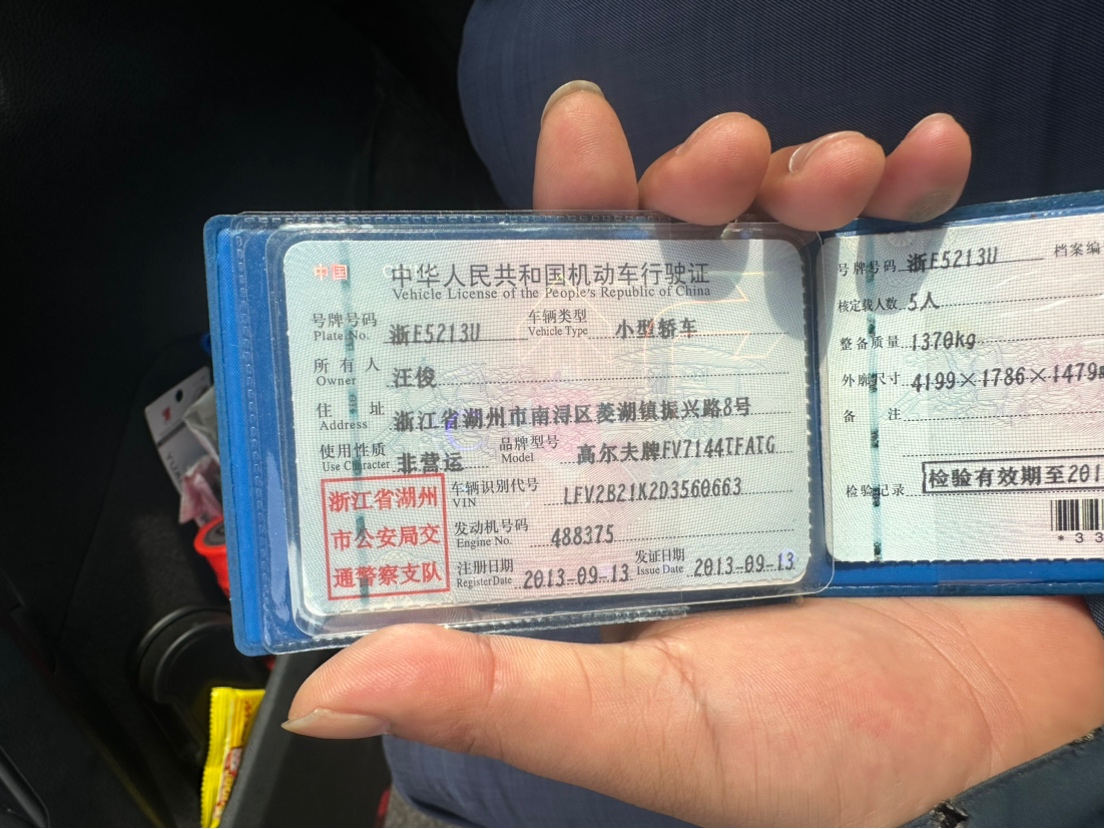 中国
中华人民共和国机动车行驶证
Vehicle License of the People's Republic of China
号牌号码 浙E5213U 车辆类型 小型轿车
Plate No. Vehicle Type
所有人 汪俊
Owner
住址 浙江省湖州市南浔区菱湖镇振兴路8号
Address
使用性质 非营运 品牌型号 高尔夫牌FV7144TFATG
Use Character Model
浙江省湖州
市公安局交
通警察支队
车辆识别代号 LFV2B21K2D3560663
VIN
发动机号码 488375
Engine No.
注册日期 2013-09-13 发证日期 2013-09-13
Register Date Issue Date
号牌号码 浙E5213U 档案编
核定载人数 5人
整备质量 1370kg
外廓尺寸 4199×1786×1479
备注
检验记录 检验有效期至201
*33